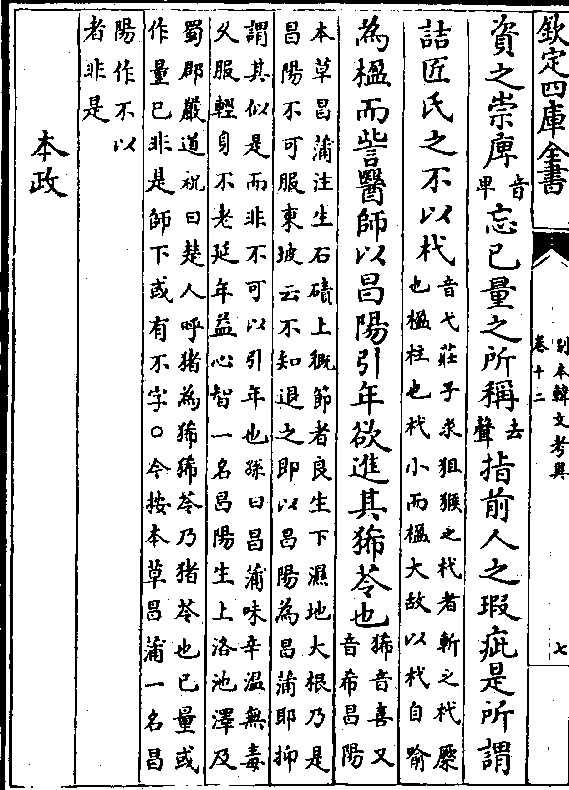 欽定四庫全書
別本韓文考異
卷十二
七
資之崇庳音卑忘已量之所稱去聲指前人之瑕疵是所謂
詰匠氏之不以杙音弋莊子求狙猴之杙者斬之杙橜
也楹柱也杙小而楹大故以杙自喻
為楹而訾醫師以昌陽引年欲進其豨苓也豨音喜又
音希昌陽
本草昌蒲注生石磧上穊節者良生下濕地大根乃是
昌陽不可服東坡云不知退之即以昌陽為昌蒲耶抑
謂其似是而非不可以引年也孫曰昌蒲味辛温無毒
乆服輕身不老延年益心智一名昌陽生上洛池澤及
蜀郡嚴道祝曰楚人呼猪為豨豨苓乃猪苓也已量或
作量已非是師下或有不字○今按本草昌蒲一名昌
陽作不以
者非是
本政